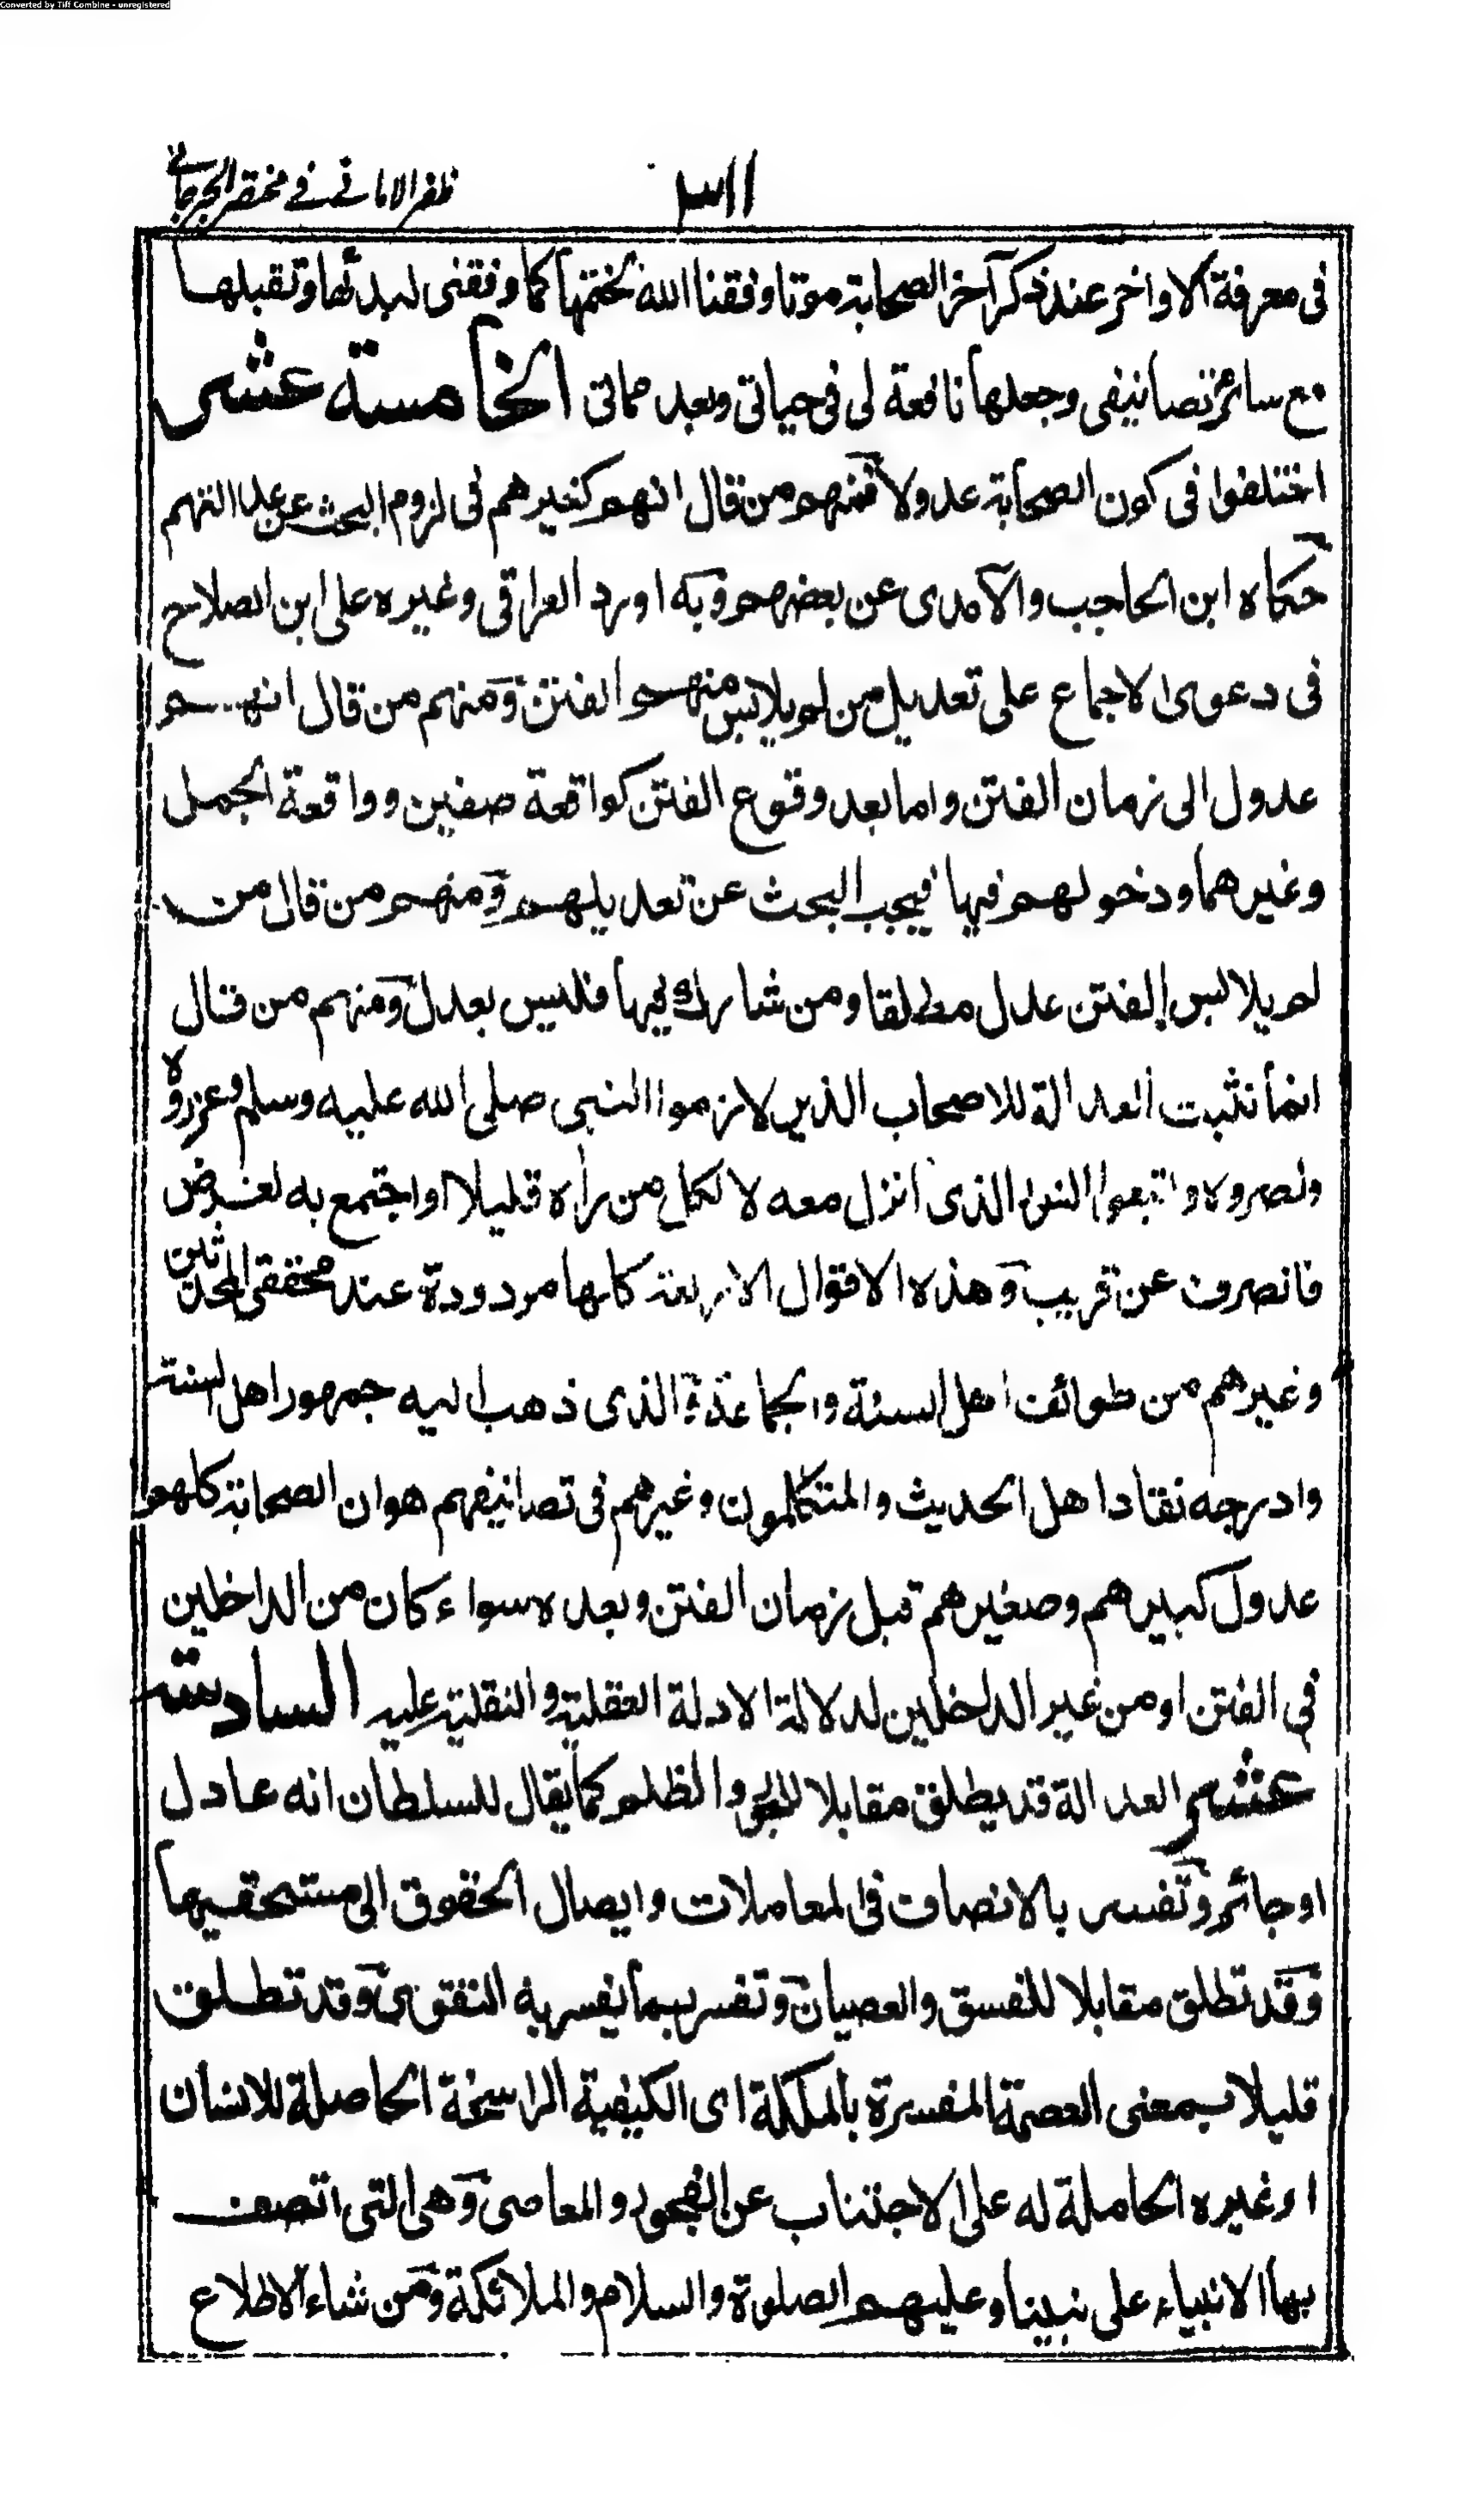 Converted by Tiff Combine - unregistered
٣١١ ظفر الامانی فی مختصر الجرجانی
فی معرفة الاواخر عند ذکر آخر الصحابة موتا وفقنا الله لختمها کما وفقنی لبدئها وتقبلها
مع سائر تصانیفی وجعلها نافعة لی فی حیاتی وبعد مماتی الخامسة عشر
اختلفوا فی کون الصحابة عدولا فمنهم من قال انهم کغیرهم فی لزوم البحث عن عدالتهم
حکاه ابن الحاجب والآمدی عن بعضهم وبه اورد العراقی وغیره علی ابن الصلاح
فی دعوی الاجماع علی تعدیل من لم یلابس منهم الفتن ومنهم من قال انهم
عدول الی زمان الفتن واما بعد وقوع الفتن کواقعة صفین وواقعة الجمل
وغیرهما ودخولهم فیها فیجب البحث عن تعدیلهم ومنهم من قال من
لم یلابس الفتن عدل مطلقا ومن شارك فیها فلیس بعدل ومنهم من قال
انما تثبت العدالة للاصحاب الذین لازموا النبی صلی الله علیه وسلم وعزروه
ونصروه واتبعوا النور الذی انزل معه لا لکل من رأه قلیلا او اجتمع به لغرض
فانصرف عن قریب وهذه الاقوال الاربعة کلها مردودة عند محققی المحدثین
وغیرهم من طوائف اهل السنة والجماعة الذی ذهب الیه جمهور اهل السنة
وادرجه نقاد اهل الحدیث والمتکلمون وغیرهم فی تصانیفهم هو ان الصحابة کلهم
عدول کبیرهم وصغیرهم قبل زمان الفتن وبعده سواء کان من الداخلین
فی الفتن او من غیر الداخلین لدلالة الادلة العقلیة والنقلیة علیه السادسة
عشر العدالة قد یطلق مقابلا للجور والظلم کما یقال للسلطان انه عادل
او جائر وتفسر بالانصاف فی المعاملات وایصال الحقوق الی مستحقیها
وقد تطلق مقابلا للفسق والعصیان وتفسر بما یفسر به التقوی وقد تطلق
قلیلا بمعنی العصمة المفسرة بالملکة ای الکیفیة الراسخة الحاصلة للانسان
او غیره الحاملة له علی الاجتناب عن الفجور والمعاصی وهی التی اتصف
بها الانبیاء علی نبینا وعلیهم الصلوة والسلام والملائکة ومن شاء الاطلاع